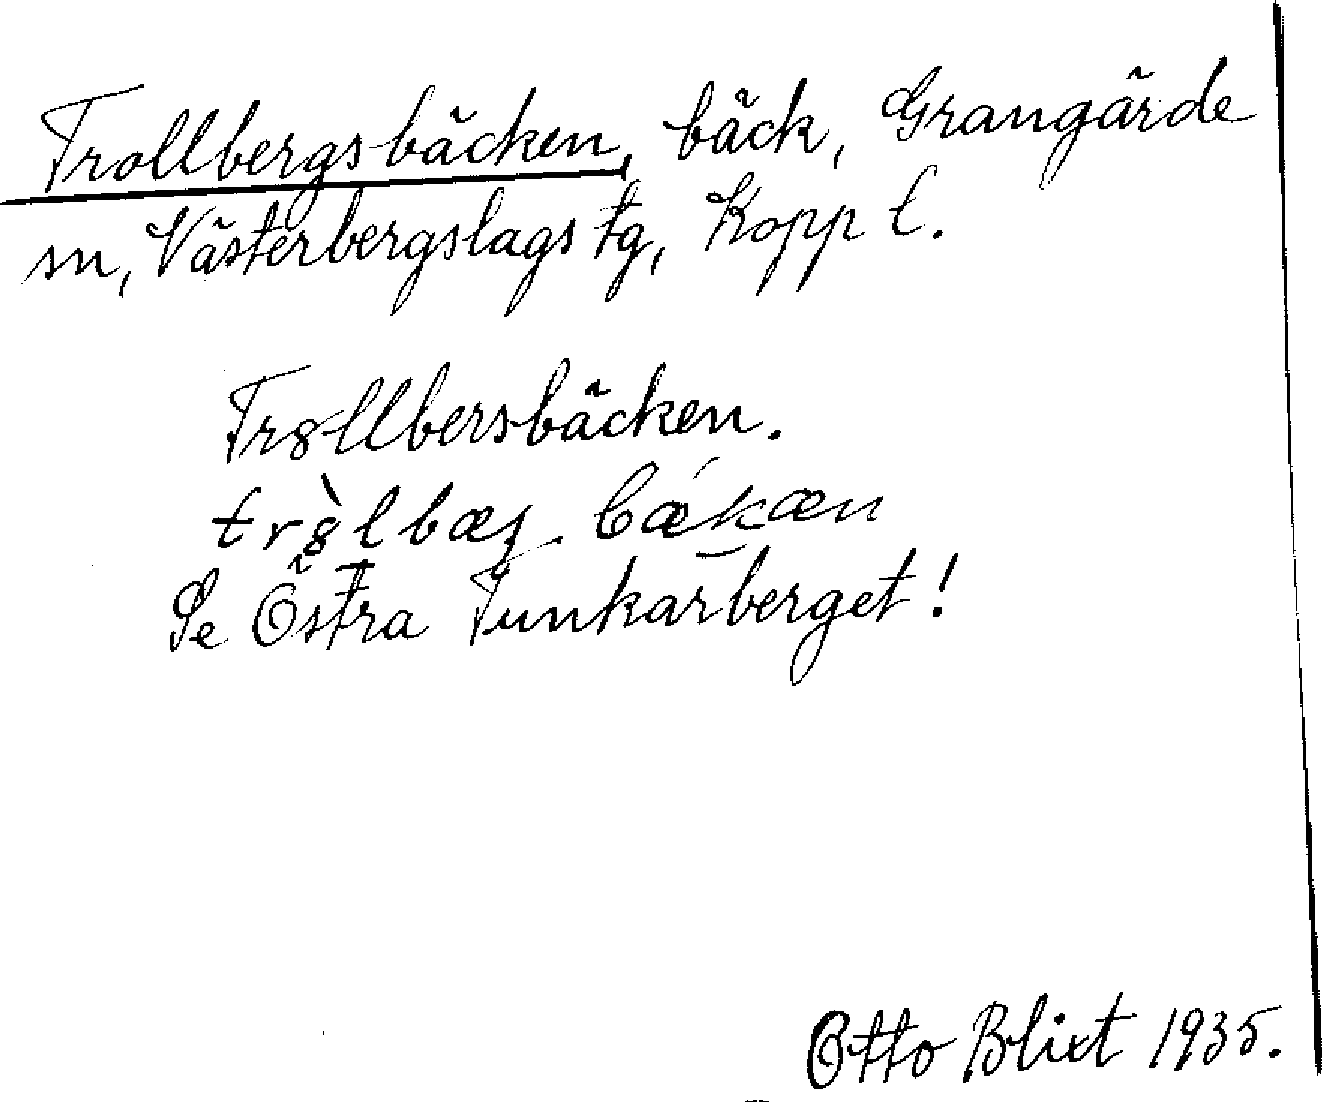 Trollbergsbäcken, bäck, Grangärde
sn, Västerbergslags tg, Kopp l.
Tr8llbersbäcken.
tr8̀lbæs bǽkæn
Se Östra Tunkarberget!
Otto Blixt 1935.